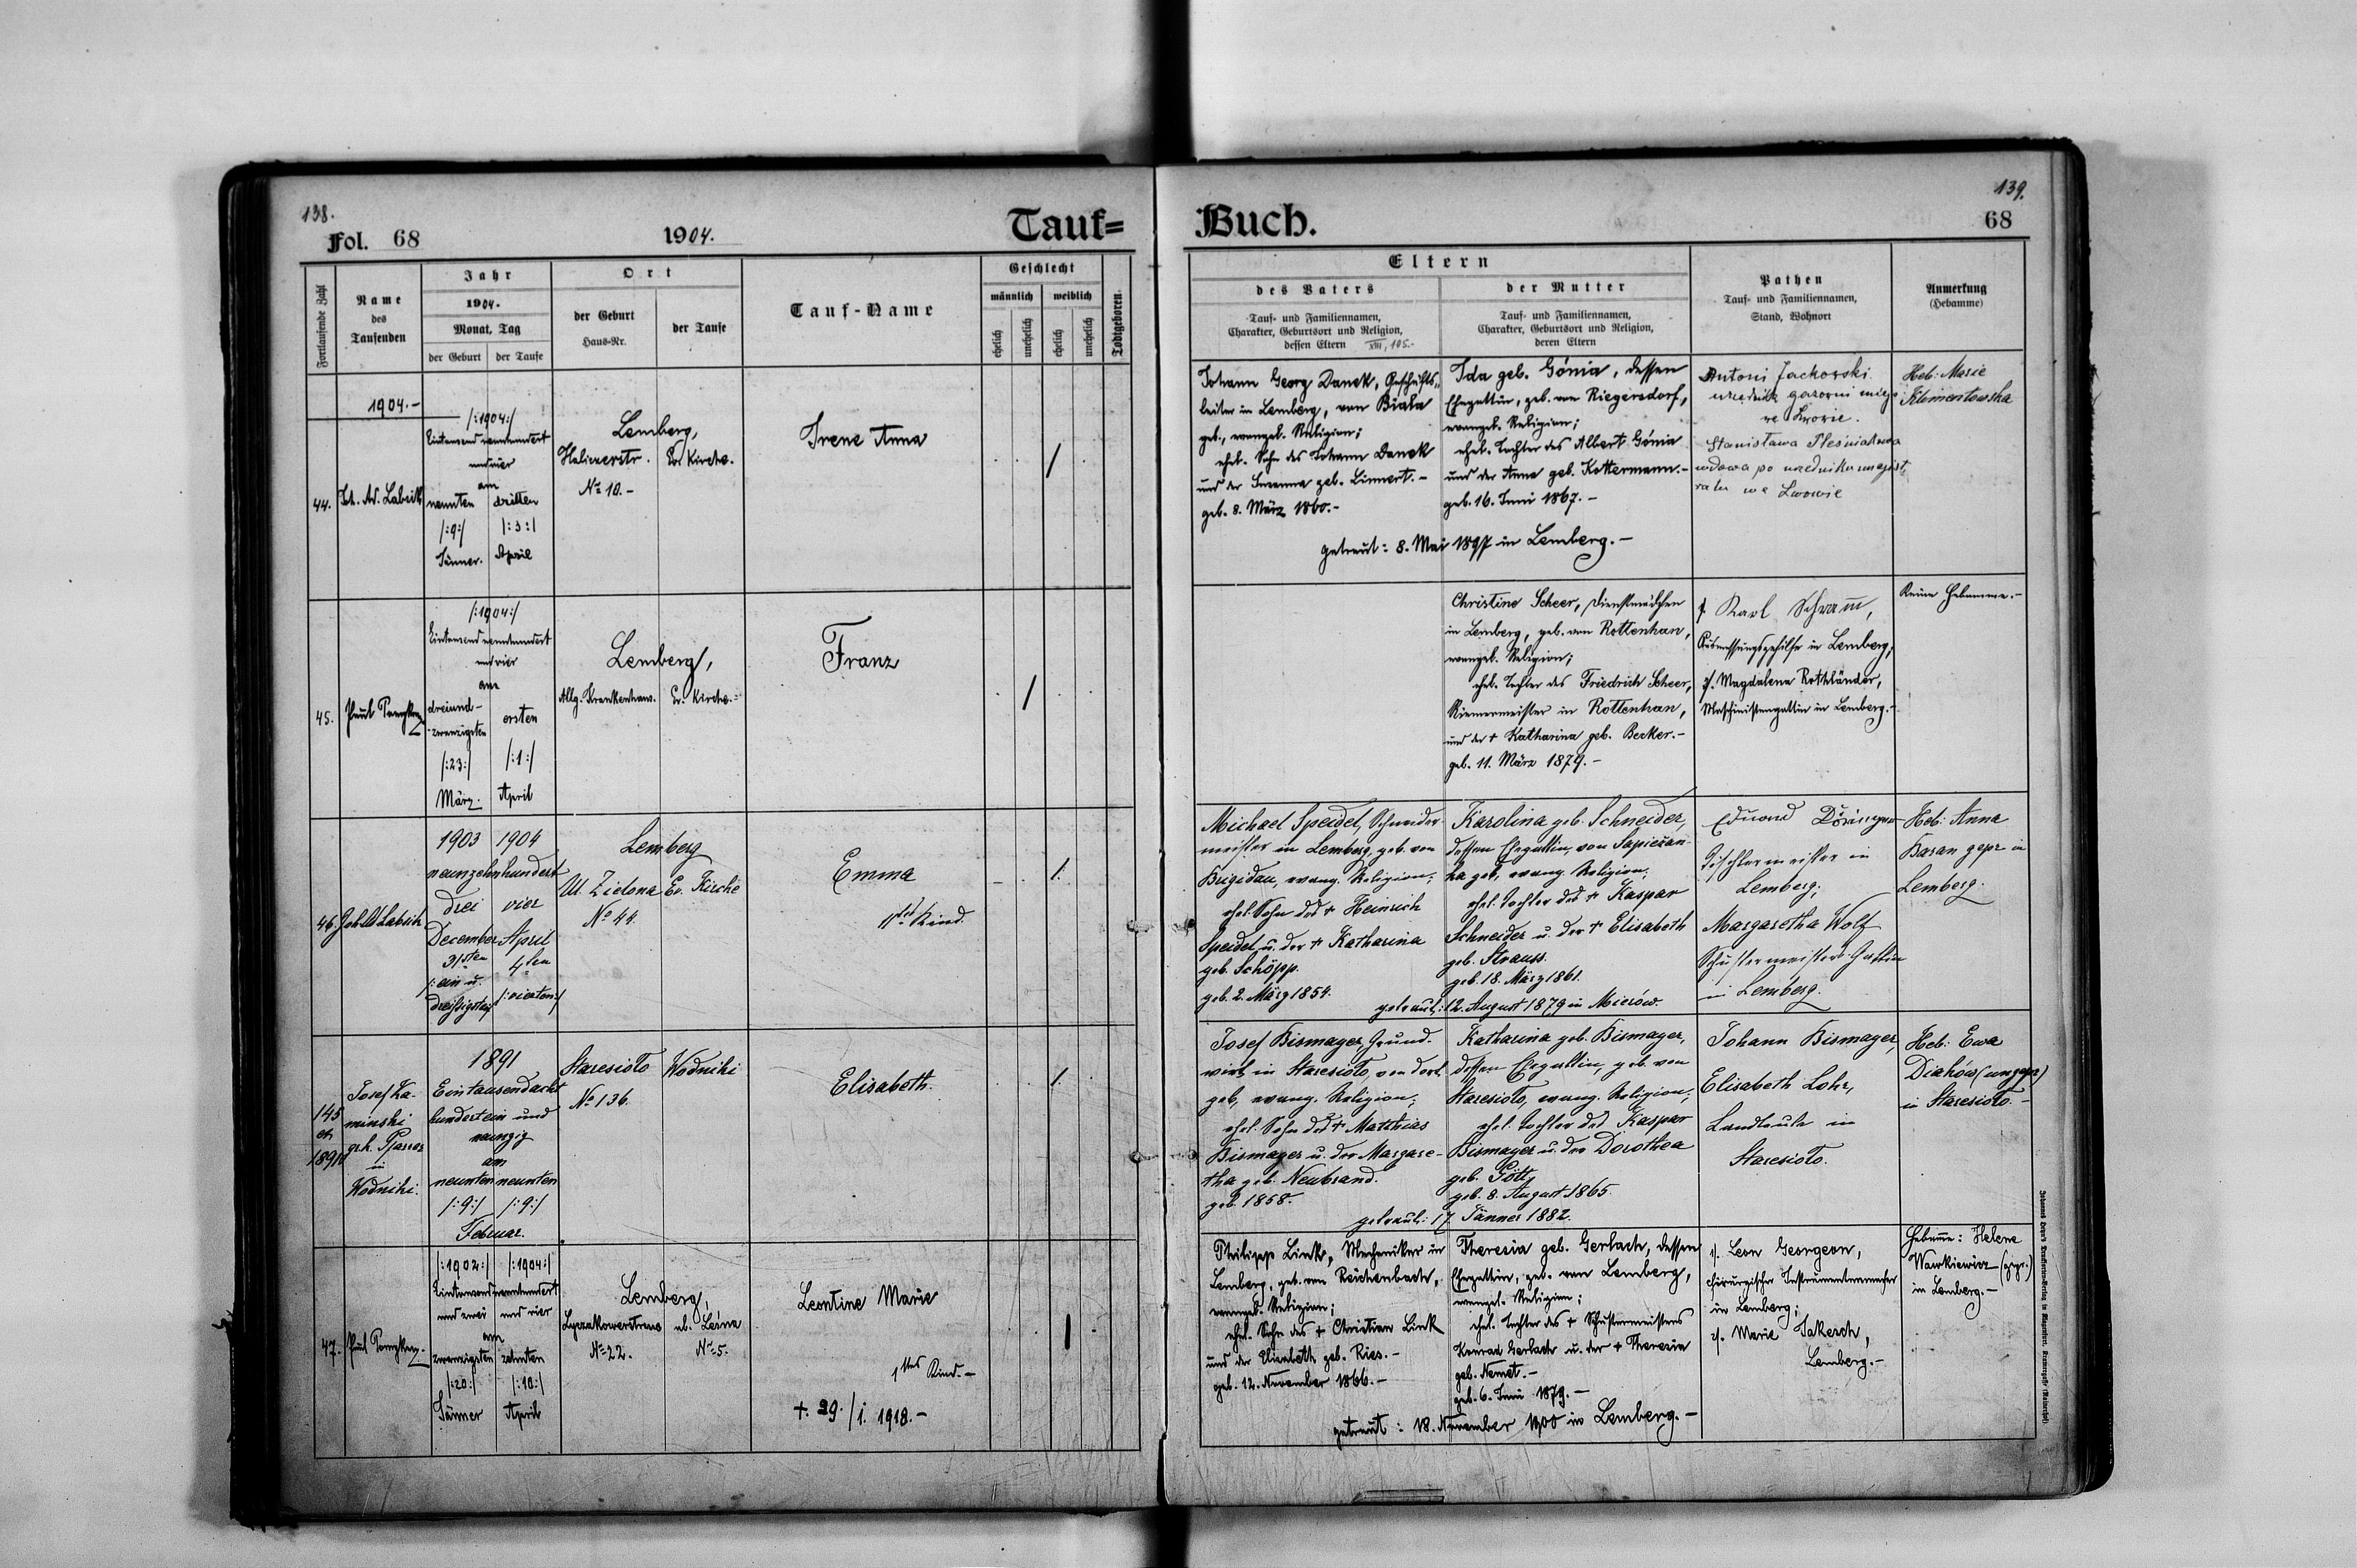 138.
Fol. 68
1904.
Tauf=
Fortlaufende Zahl
Name
des
Taufenden
Jahr
1904.
Monat, Tag
der Geburt
der Taufe
Ort
der Geburt
Haus-Nr.
der Taufe
Tauf-Name
Geschlecht
männlich
weiblich
ehelich
unehelich
ehelich
unehelich
Todtgeboren
1904.-
44.
/:1904:/
Eintausend neunhundert
und vier
am
neunten dritten
/:9:/ /:3:/
Jänner. April
Lemberg,
Haliczerstr. Ev. Kirche.
No 10.-
Irene Anna
45.
/:1904:/
Eintausend neunhundert
und vier
am
dreiund-
zwanzigsten
ersten
/:23:/ /:1:/
März. April
Lemberg,
Allg. Krankenhaus. Ev. Kirche.-
Franz
46.
1903 1904
neunzehnhundert
drei vier
December April
31sten 4ten
/:ein u.
dreißigsten /:vierten:/
Lemberg
Ul. Zielona Ev. Kirche
No 44.
Emma
11tes Kind.
145
ex
1891
Josef Ka-
minski
gr. k. Pfarrer
in
Wodniki.
1891
Eintausendacht
hundertein und
neunzig
am
neunten neunten
/:9:/ /:9:/
Februar.
Staresioło Wodniki
No 136.
Elisabeth.
47.
/:1902:/ /:1904:/
Eintausend neunhundert
und zwei und vier
am
zwanzigsten zehnten
/:20:/ /:10:/
Jänner April
Lemberg,
Lyczakowerstrasse ul. Leśna
No 22. No 5.
Leontine Marie
1tes Kind.-
+. 29./1. 1918.-
139.
Buch.
68
Eltern
des Vaters
Tauf- und Familiennamen,
Charakter, Geburtsort und Religion,
dessen Eltern XIII, 105.-
der Mutter
Tauf- und Familiennamen,
Charakter, Geburtsort und Religion,
deren Eltern
Pathen
Tauf- und Familiennamen,
Stand, Wohnort
Anmerkung
(Hebamme)
Johann Georg Danek, Geschäfts-
leiter in Lemberg, von Biała
geb., evangel. Religion;
ehel. Sohn des Johann Danek
und der Susanna geb. Linnert.-
geb. 8. März 1860.-
Ida geb. Gónia, dessen
Ehegattin, geb. von Riegersdorf,
evangel. Religion;
ehel. Tochter des Albert Gónia
und der Anna geb. Kottermann.-
geb. 16. Juni 1867.-
getraut: 8. Mai 1897 in Lemberg.-
Antoni Jackowski
urzędnik gazowni miejs
we Lwowie.
Stanisława
wdowa po urzedniku magist
ratu we Lwowie
Heb: Marie
Klimentowska
Christine Scheer, Dienstmädchen
in Lemberg, geb. von Rottenhan,
evangel. Religion;
ehel. Tochter des Friedrich Scheer,
Riemermeister in Rottenhan,
und der + Katharina geb. Becker.-
geb. 11. März 1879.-
1. Karl Schram,
in Lemberg;
2. Magdalena Rothländer,
Maschinistengattin in Lemberg.-
Keine Hebamme.-
Michael Speidel, Schneider-
meister in Lemberg, geb. von
Brigidau, evang. Religion;
ehel. Sohn des + Heinrich
Speidel u. der + Katharina
geb. Schöpp.
geb. 2. März 1854.
Karolina geb. Schneider,
dessen Ehegattin, von Sapieżan-
ka geb., evang. Religion;
ehel. Tochter des + Kaspar
Schneider u. der + Elisabeth
geb. Strauss.
geb. 18. März 1861.
getraut: 12. August 1879 in Mierów.
Eduard
Tischlermeister in
Lemberg;
Margaretha Wolf
Schustermeisters-Gattin
in Lemberg.
Heb: Anna
Baran gepr. in
Lemberg.
Josef Bismayer, Grund-
wirt in Staresioło, von dort
geb., evang. Religion;
ehel. Sohn des + Matthias
Bismayer u. der Margare-
tha geb. Neubrand.
geb. 1858.
Katharina geb. Bismayer,
dessen Ehegattin, geb. von
Staresioło, evang. Religion;
ehel. Tochter des Kaspar
Bismayer u. der Dorothea
geb. Gött,
geb. 8. August 1865.
getraut: 17. Jänner 1882.
Johann Bismayer,
Elisabeth Lohr,
Landleute in
Staresioło.
Heb: Ewa
Diaków (ungepr.)
in Staresioło.-
Philipp Link, Mechaniker in
Lemberg, geb. von Reichenbach,
evangel. Religion;
ehel. Sohn des + Christian Link
und der Elisabeth geb. Ries.-
geb. 12. November 1866.-
Theresia geb. Gerlach, dessen
Ehegattin, geb. von Lemberg,
evangel. Religion;
ehel. Tochter des + Schustermeisters
Konrad Gerlach u. der + Theresia
geb. Nemet.-
geb. 6. Juni 1879.-
getraut: 18. November 1900 in Lemberg.-
1. Leon Georgeon,
chirurgischer Instrumentenmacher
in Lemberg;
2. Marie Sakesch,
Lemberg.-
Hebamme: Helene
Wawkiewicz (gepr.)
in Lemberg.-